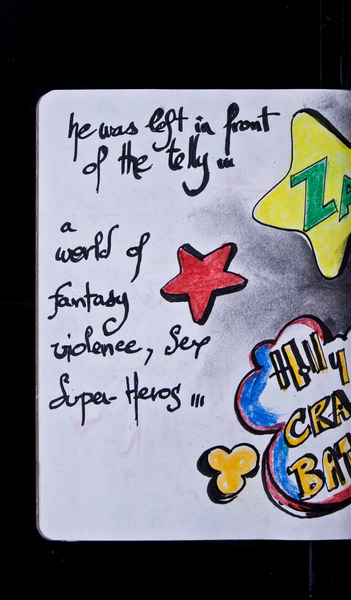 he was left in front
of the telly ...
a
world of
fantasy
violence, Sex
Super-Heros ...
ZA
CRA
BAT